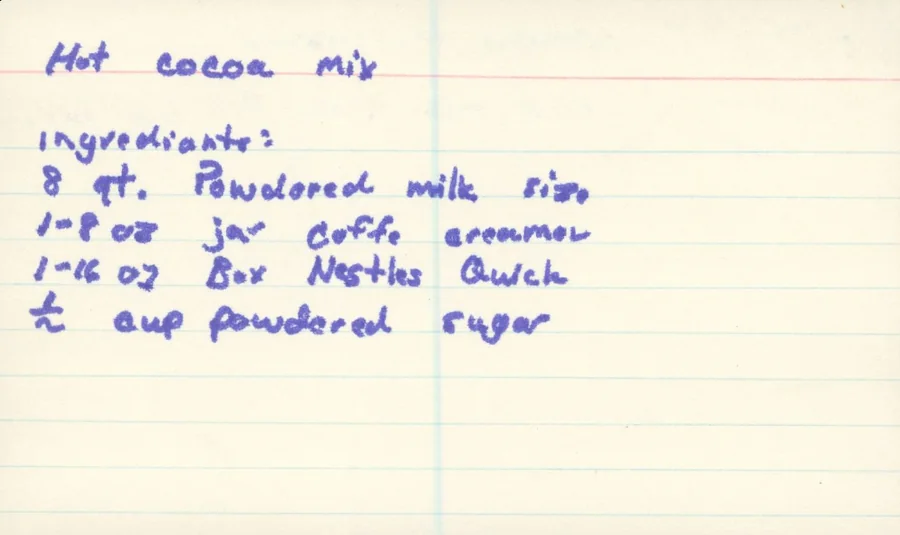 Hot cocoa mix
Ingrediants:
8 qt. Powdored milk size
1-8 oz jar coffe creamer
1-16 oz Box Nestles Quick
1/2 cup powdered sugar